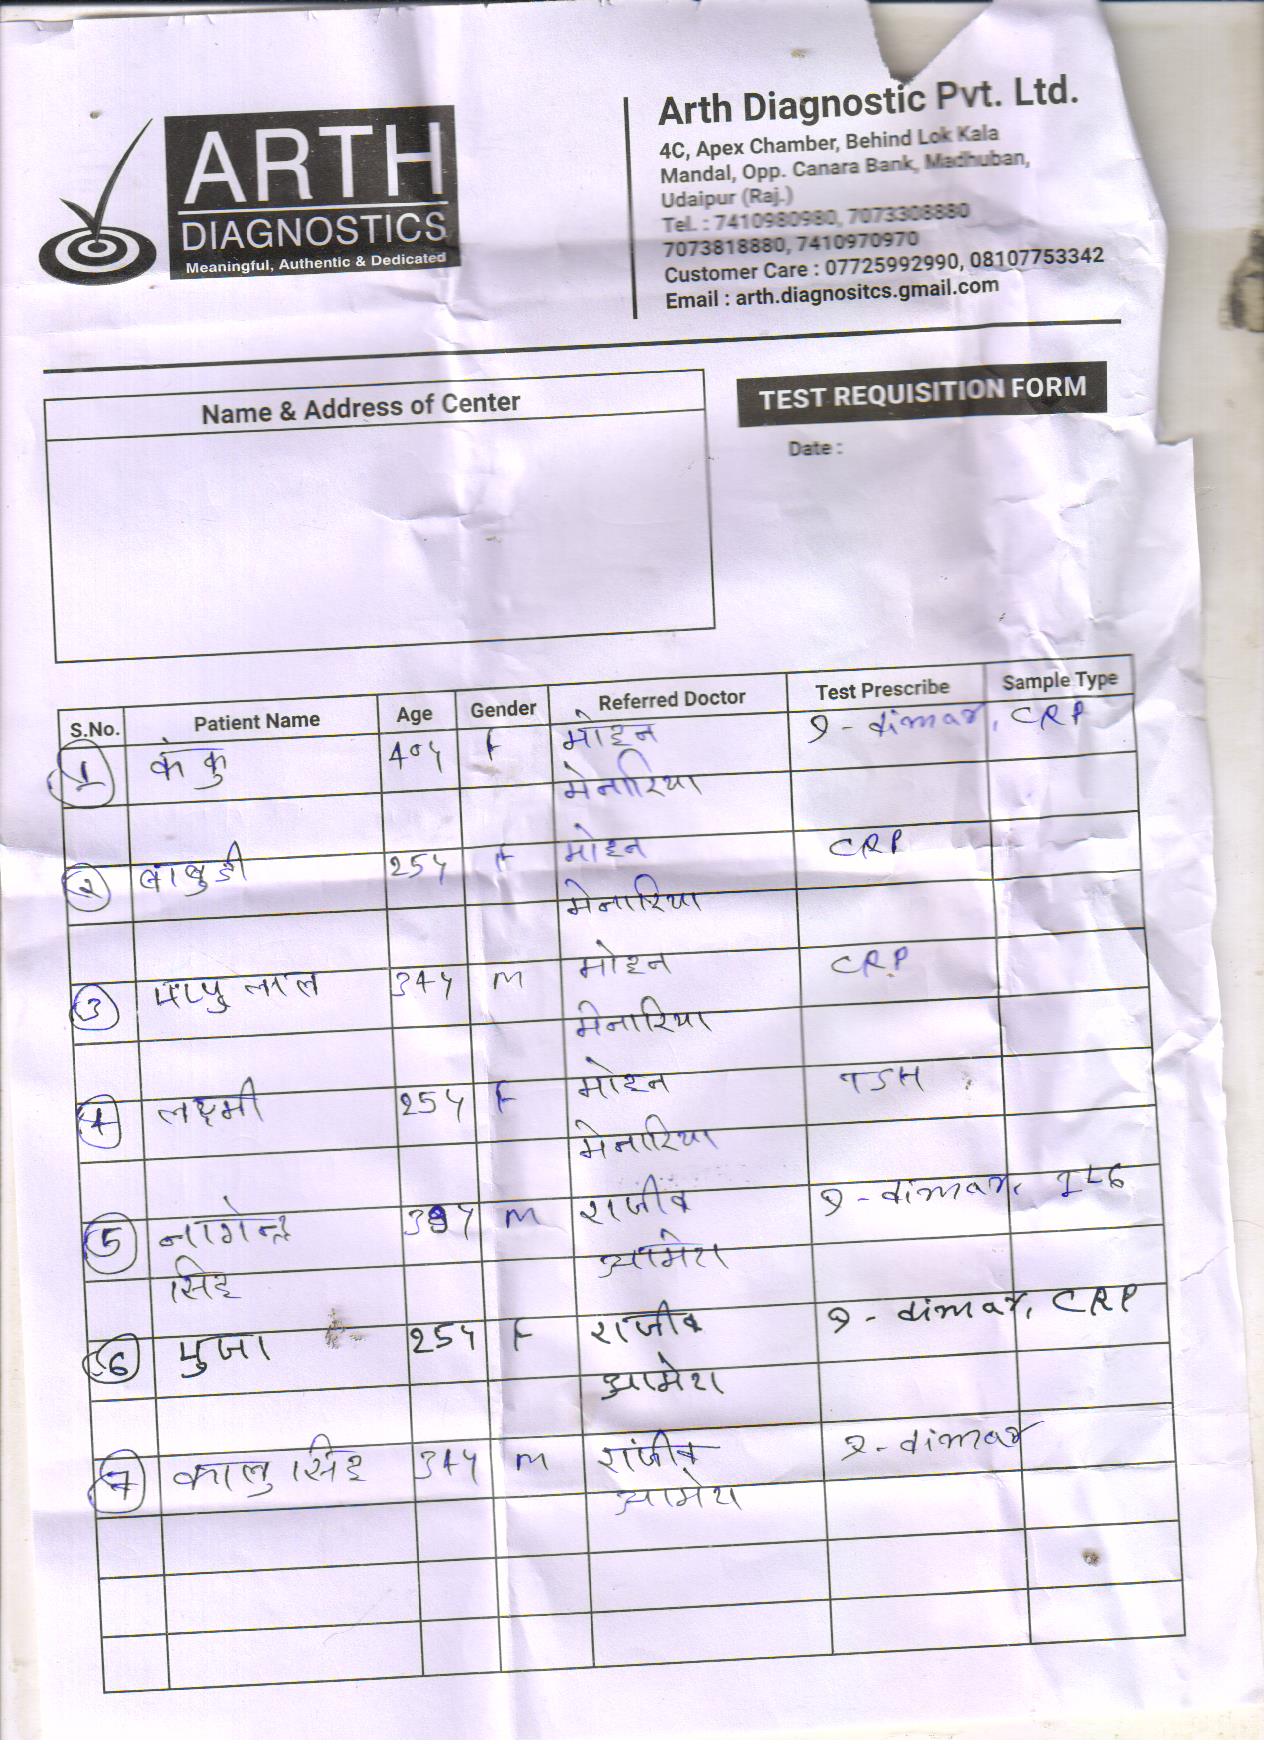 ARTH
DIAGNOSTICS
Meaningful, Authentic & Dedicated
Arth Diagnostic Pvt. Ltd.
4C, Apex Chamber, Behind Lok Kala
Mandal, Opp. Canara Bank, Madhuban,
Udaipur (Raj.)
Tel. : 7410980980, 7073308880
7073818880, 7410970970
Customer Care : 07725992990, 08107753342
Email : arth.diagnositcs.gmail.com
Name & Address of Center
TEST REQUISITION FORM
Date :
S.No. Patient Name Age Gender Referred Doctor Test Prescribe Sample Type
1 केकु 40y F मोहन D-dimar, CRP
मेनारिया
2 बाबुडी 25y F मोहन CRP
मेनारिया
3 पप्पु लाल 34y M मोहन CRP
मेनारिया
4 लक्ष्मी 25y F मोहन TSH
मेनारिया
5 नागेन्द्र M राजीव D-dimar, IL6
सिंह आमेरा
6 पुजा 25y F राजीव D-dimar, CRP
आमेरा
7 कालु सिंह 34y M राजीव D-dimar
आमेरा